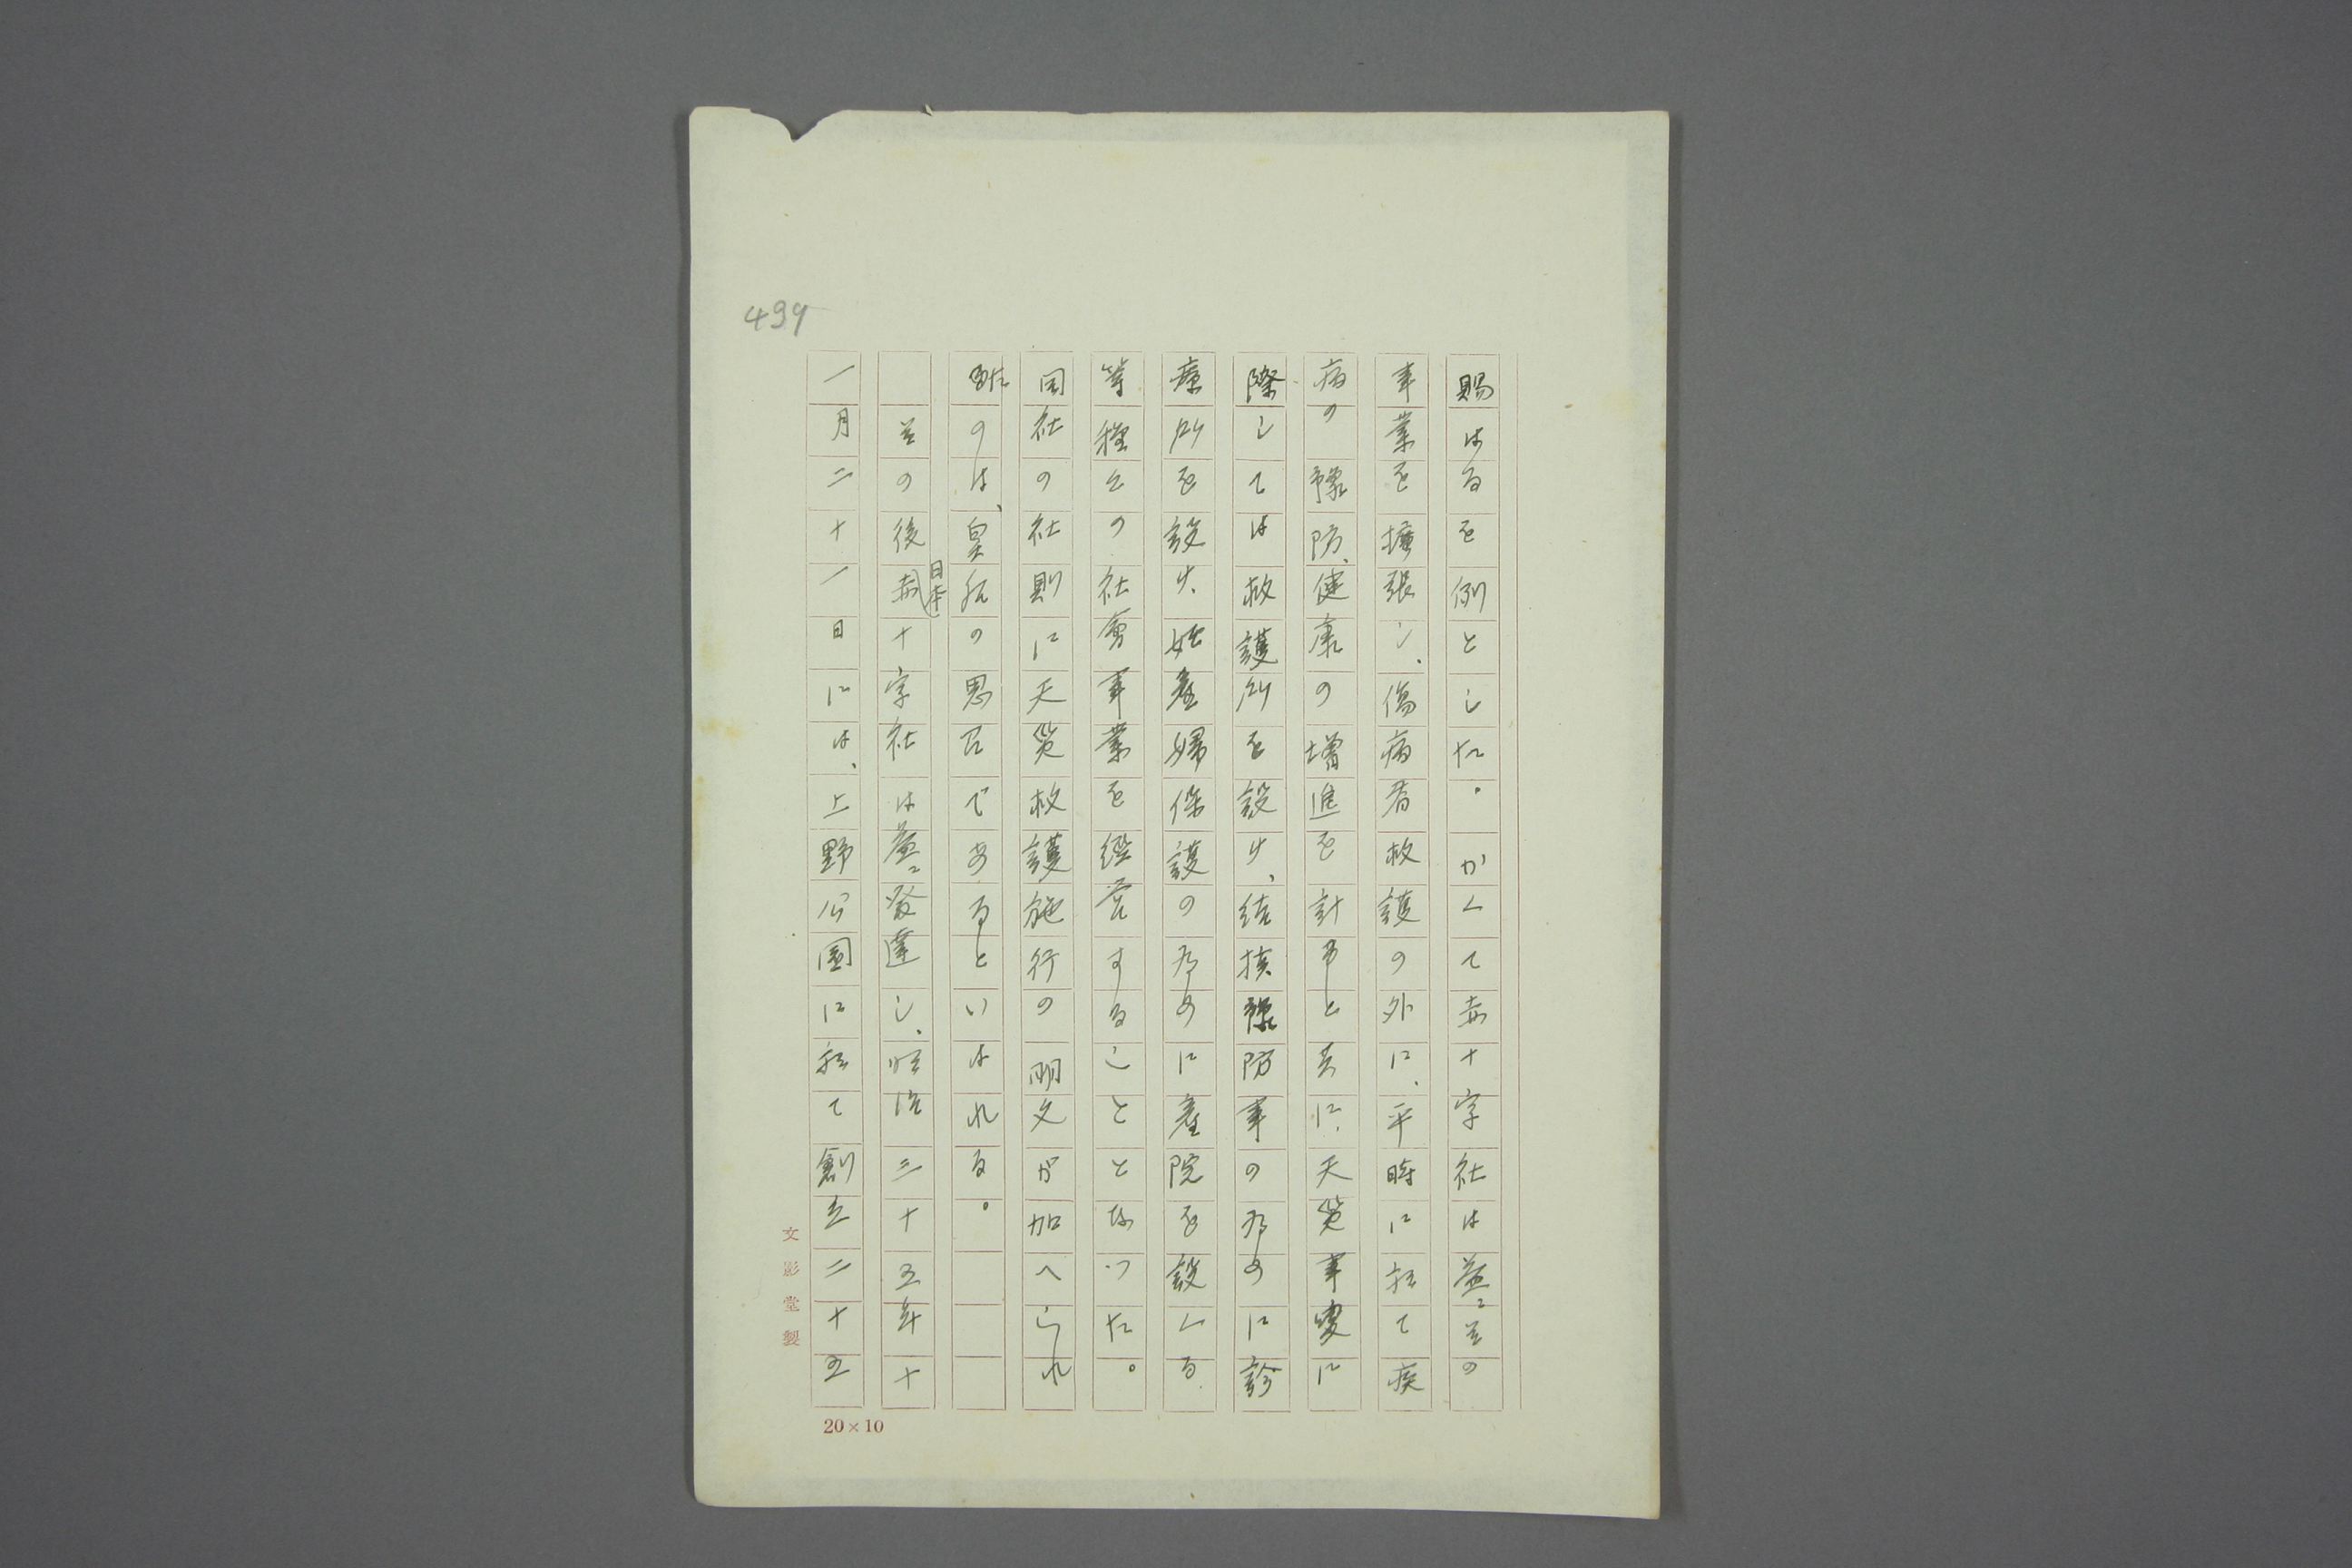 499
賜はるを例とした。かくて赤十字社は益〻其の
事業を擴張し、傷病者救護の外に、平時に於て疾
病の豫防、健康の增進を計るとと共に、天災事變に
際しては救護所を設け、結核豫防事の為めに診
療所を設け、姙產婦保護の為めに產院を設くる
等種々の社會事業を經営することとなつた。
同社の社則に天災救護施行の明文が加へられ
たのは、皇后の思召であるといはれる。
其の後日本赤十字社は益〻發達し、明治三十五年十
一月二十一日には、上野公園に於て創立二十五
文影堂製
20×10